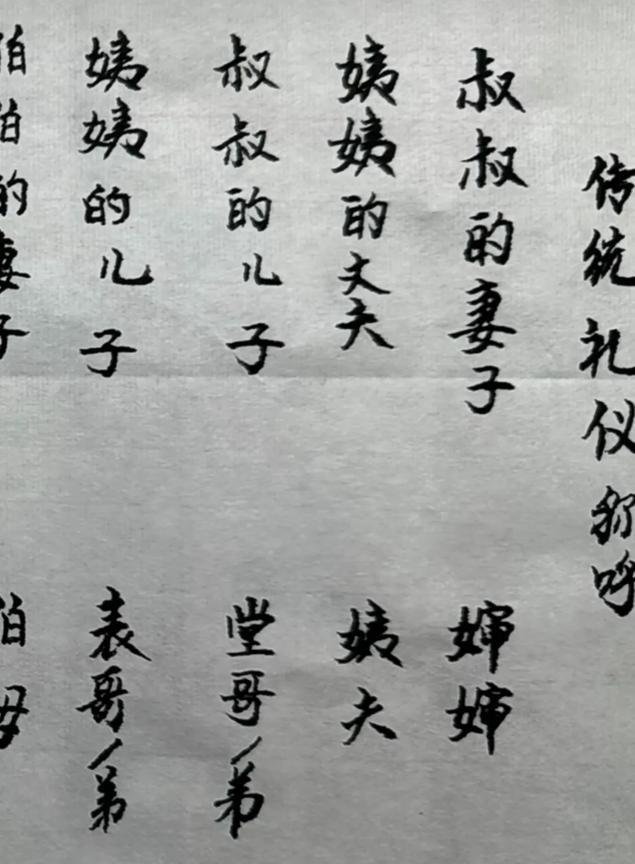 传统礼仪称呼
叔叔的妻子 婶婶
姨姨的丈夫 姨夫
叔叔的儿子 堂哥/弟
姨姨的儿子 表哥/弟
伯伯的妻子 伯母